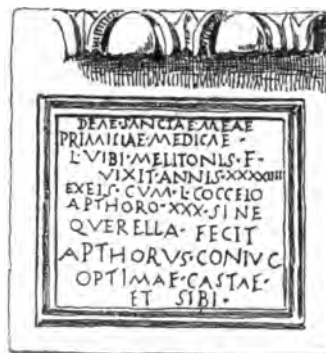 DEAE·SANCTAE·MEAE
PRIMILLAE·MEDICAE·
L·VIBI·MELITONIS·F·
VIXIT·ANNIS·XXXXIIII
EXEIS·CUM·L·COCCEIO
APTHORO·XXX·SINE
QVERELLA·FECIT
APTHORUS·CONIVC
OPTIMAE·CASTAE·
ET SIBI·